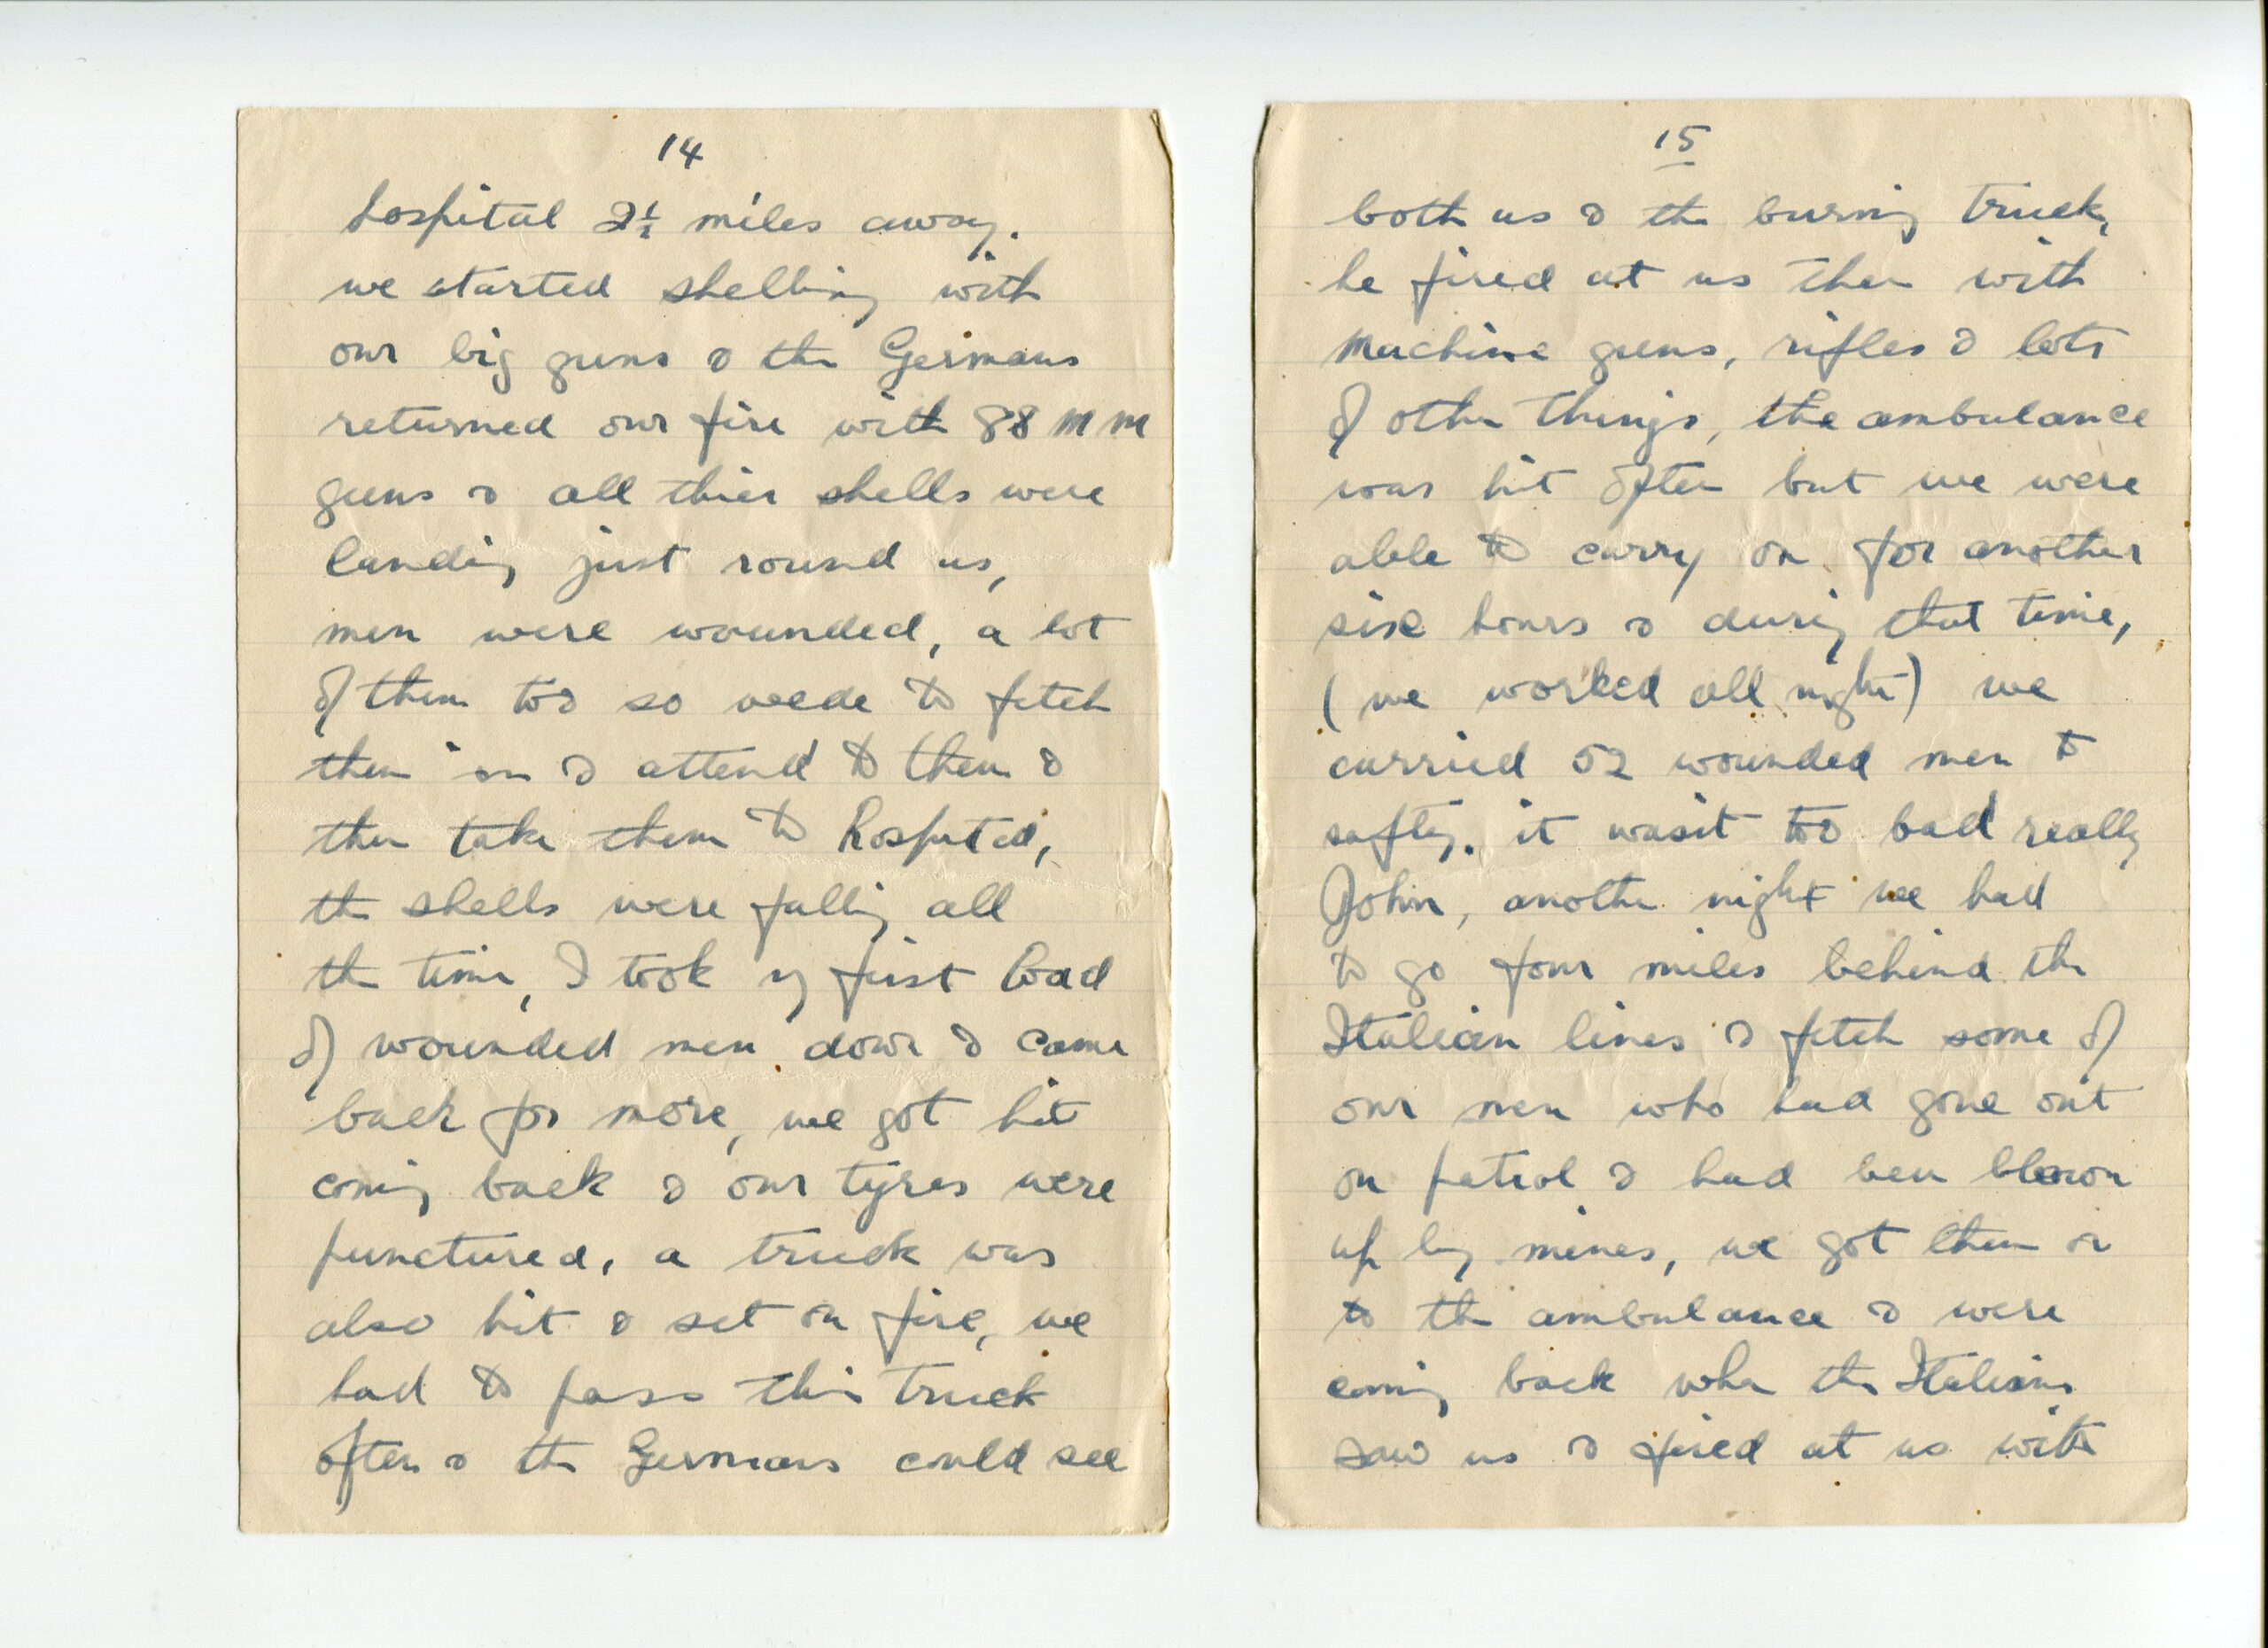 14
hospital 2½ miles away.
we started shelling with
our big guns & the Germans
returned our fire with 88 MM
guns & all thier shells were
landing just round us,
men were wounded, a lot
of them too so to fetch
them in & attend to them &
then take them to hospital,
the shells were falling all
the time, I took my first load
of wounded men down & came
back for more, we got hit
coming back & our tyres were
punctured, a truck was
also hit & set on fire, we
had to pass this truck
often & the Germans could see
15
both us & the burning truck,
he fired at us then with
machine guns, rifles & lots
of other things, the ambulance
was hit often but we were
able to carry on for another
six hours & during that time,
(we worked all night) we
carried 52 wounded men to
safty. it wasit too bad really
John, another night we had
to go four miles behind the
Italian lines & fetch some of
our men who had gone out
on patrol & had been blown
up by mines, we got them in
to the ambulance & were
coming back when the Italians
saw us & fired at us with